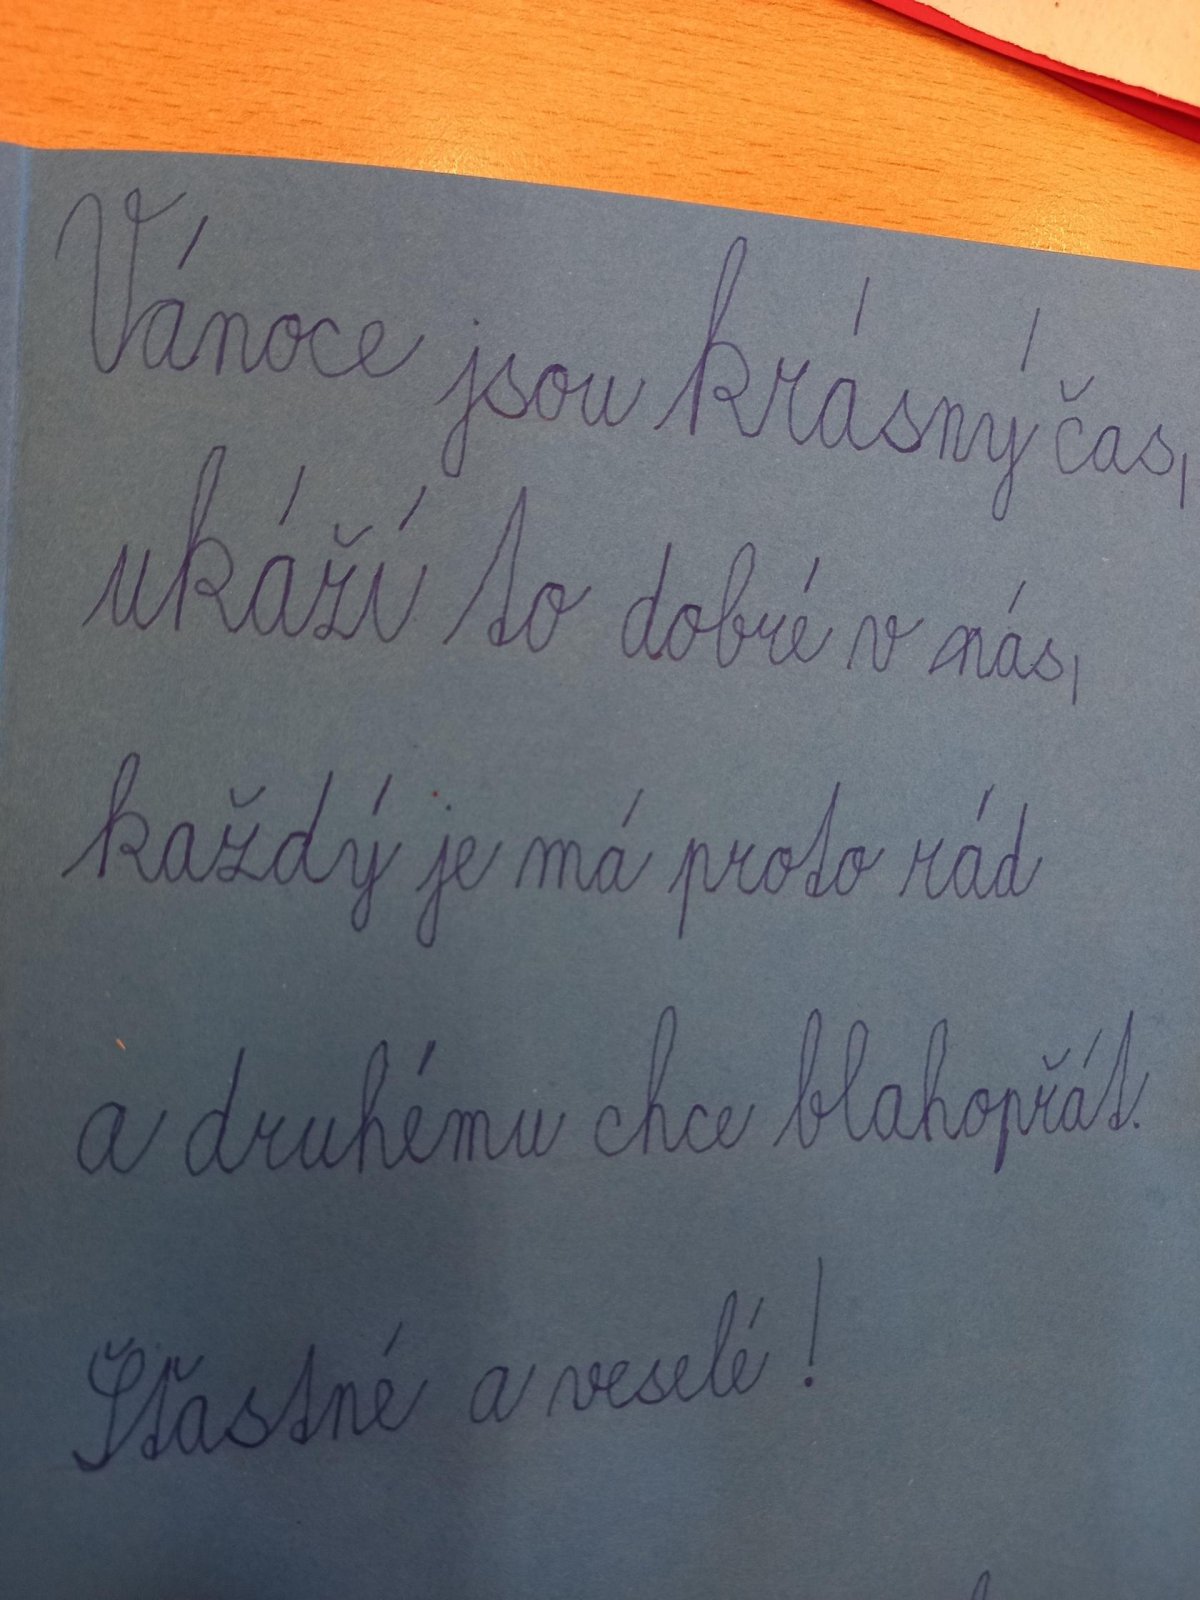 Vánoce jsou krásný čas,
ukáží to dobré v nás,
každý je má proto rád
a druhému chce blahopřát.
Šťastné a veselé!